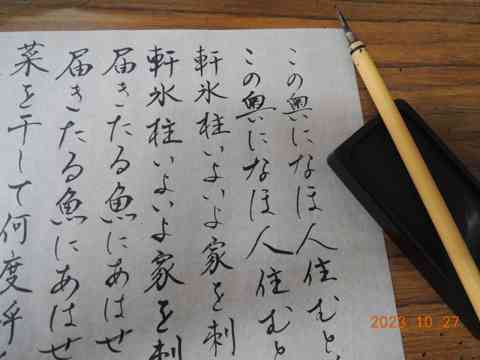 この奥になほ人住むと
この奥になほ人住むと
軒氷柱いよいよ家を刺
軒氷柱いよいよ家を刺
届きたる魚にあはせ
届きたる魚にあはせ
菜を干して何度
2023 10 27